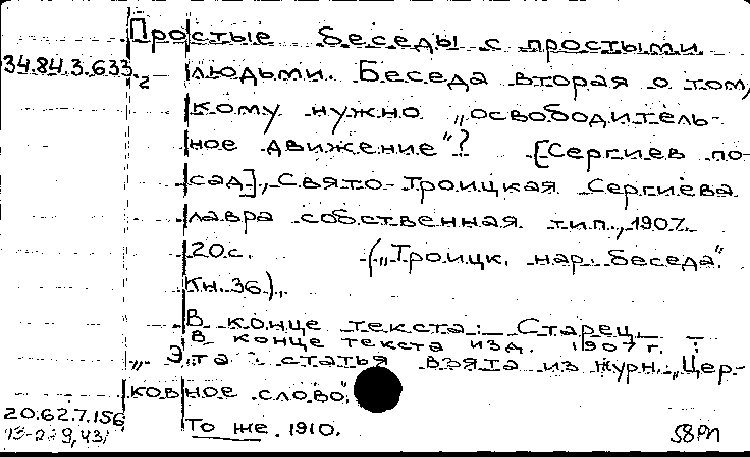 Простые беседы с простыми
34.84.3.633 -2 людьми. Беседа вторая о том,
кому нужно „освободитель-
ное движение"? [Сергиев по-
сад], Свято-Троицкая Сергиева
лавра собственная тип., 1907.
20 с. („Троицк. нар. беседа".
Кн. 36).
В конце текста: Старец.
В конце текста изд. 1907 г. :
„Эта статья взята из журн. „Цер-
ковное слово".
20.62.7.156
То же. 1910.